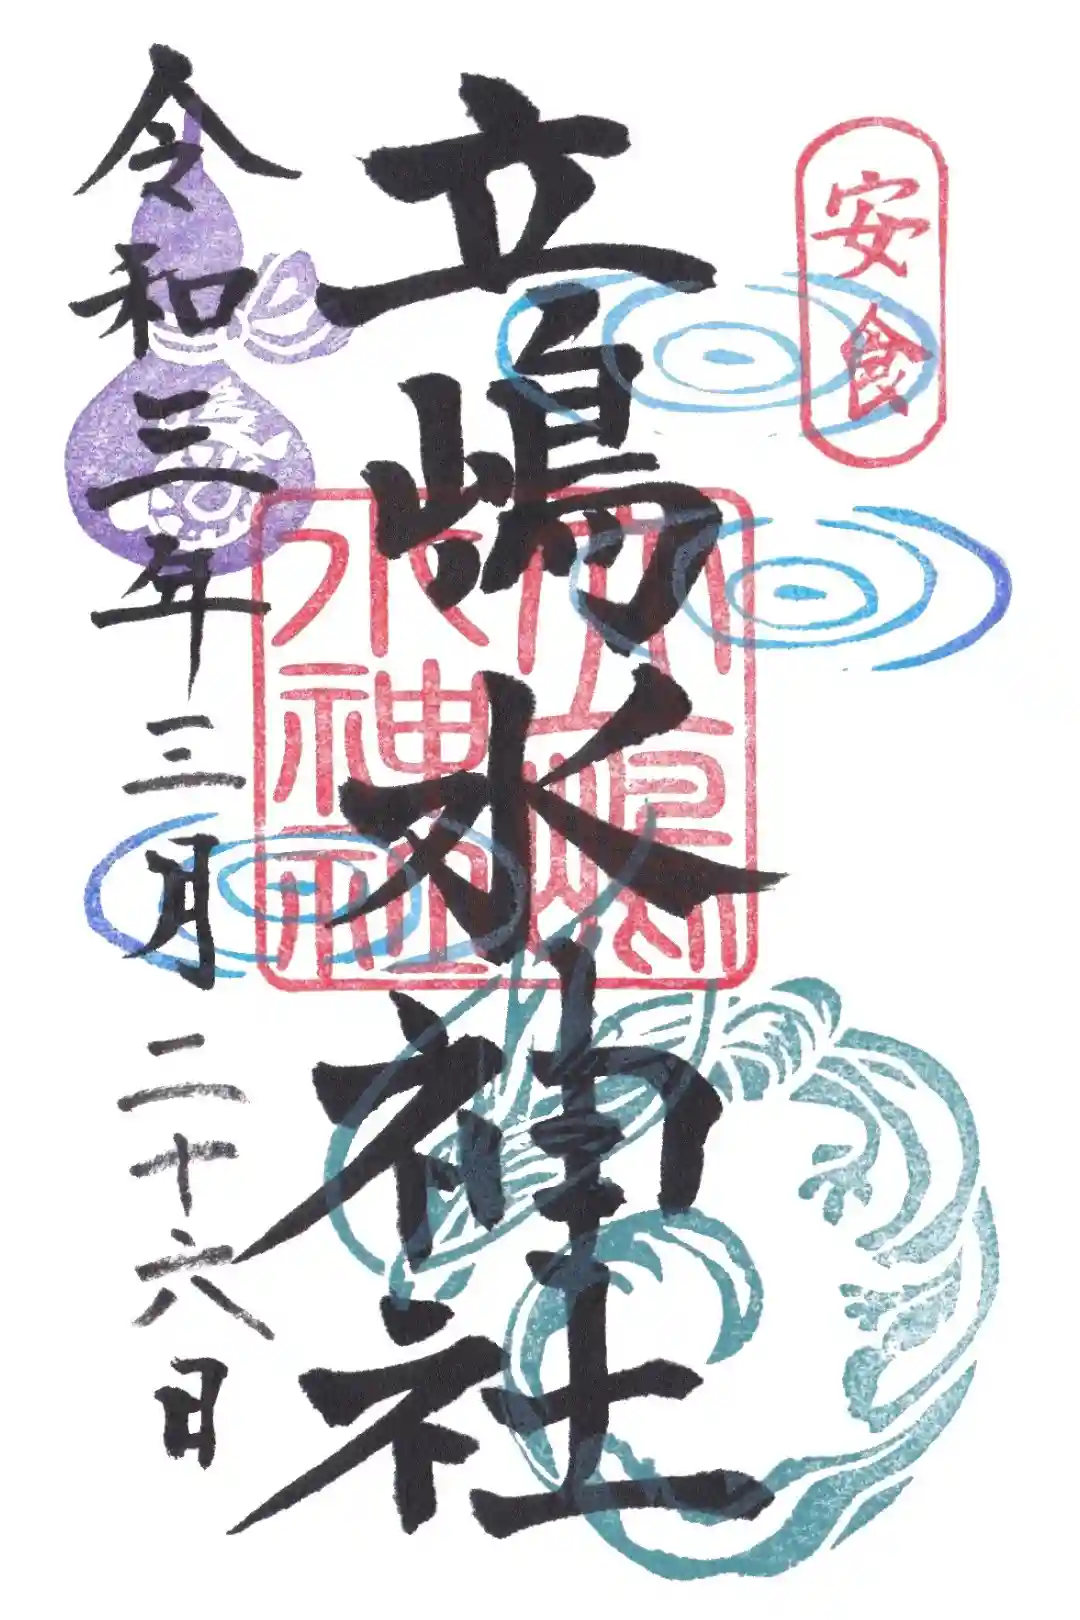 安食
立嶋水神社
六立嶋
水神社
令和三年三月二十六日